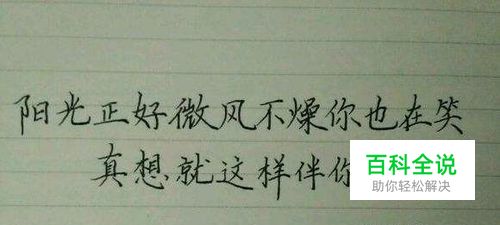 阳光正好微风不燥你也在笑
真想就这样伴你
百科全说
助你轻松解决